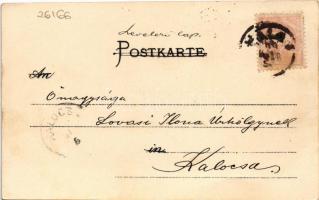 26166
Levelezi lap.
POSTKARTE
An
Őnagysága
Lovasi Ilona Úrhölgynek
in
Kalocsa